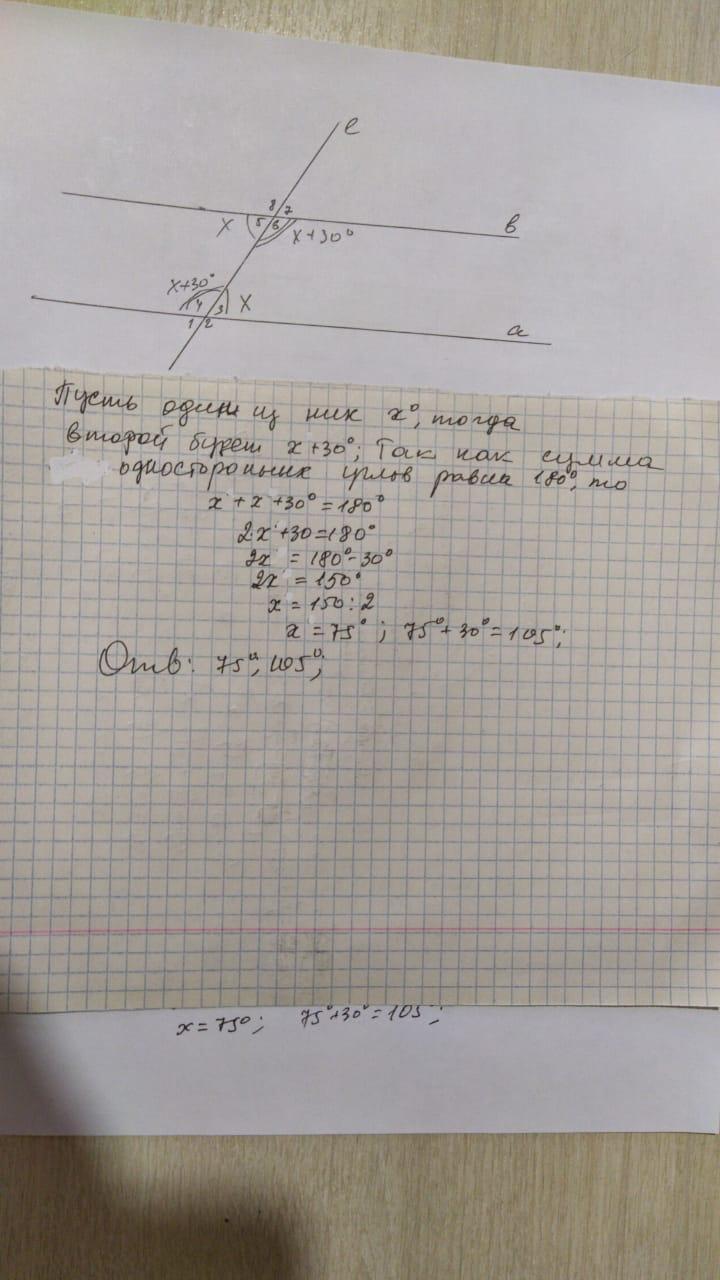 e
8 7
х 5 6 х+30°
в
х+30°
4 3 х
1 2
а
Пусть один из них х°, тогда
второй будет х+30°; Так как сумма
односторонних углов равна 180°, то
х + х +30° = 180°
2х +30=180°
2х = 180°-30°
2х = 150°
х = 150:2
х = 75° ; 75°+30°=105°;
Отв: 75°, 105°;
х = 75°; 75°+30°=105°;